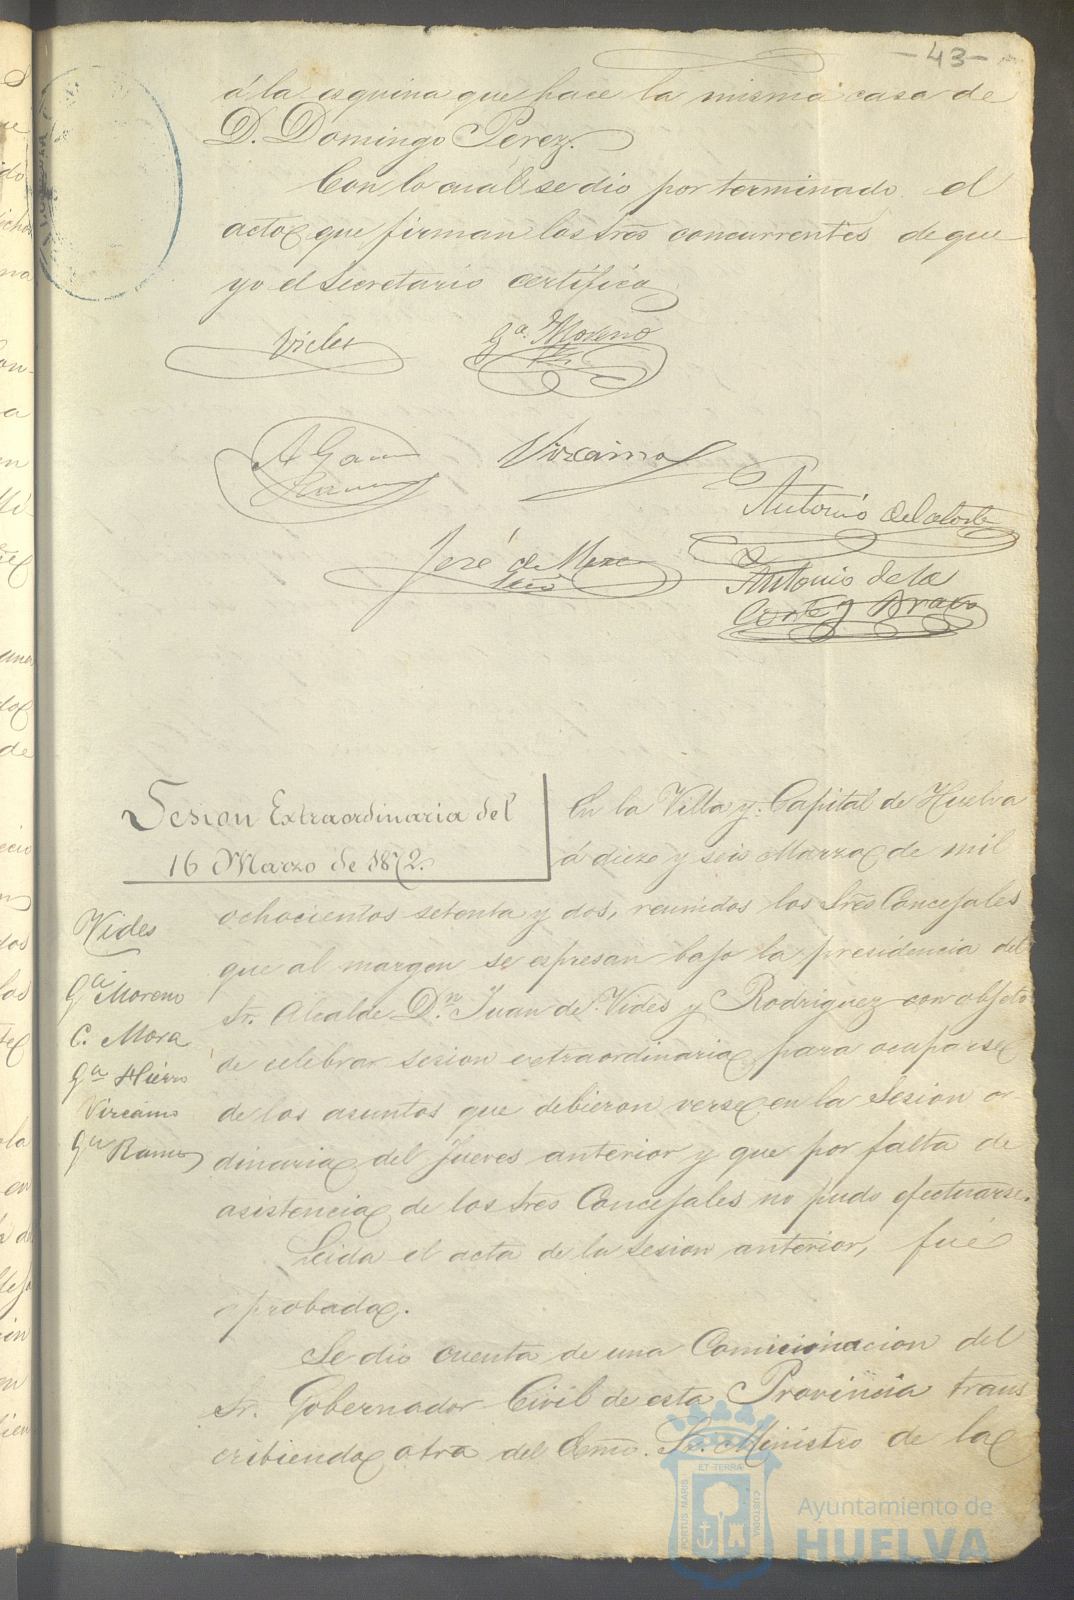 -43-
á la esquina que hace la misma casa de
D. Domingo Perez.
Con lo cual se dio por terminado el
acto que firman los Sres concurrentes de que
yo el Secretario certifico
Vides
Ga. Moreno
A Garcia
Ramos
Vizcaino
Antonio de la Corte
José de Mora
Antonio de la
Corte y Bravo
Sesion Extraordinaria del
16 Marzo de 1872.
En la Villa y Capital de Huelva
á diez y seis Marzo de mil
ochocientos setenta y dos, reunidos los Sres Concejales
que al margen se espresan bajo la presidencia del
Sr. Alcalde Dn. Juan de Vides y Rodriguez con objeto
de celebrar sesion extraordinaria para ocuparse
de los asuntos que debieron verse en la Sesion or-
dinaria del Jueves anterior y que por falta de
asistencia de los Sres Concejales no pudo efectuarse.
Leida el acta de la sesion anterior, fué
aprobada.
Se dio cuenta de una Comicionacion del
Sr. Gobernador Civil de esta Provincia trans
cribiendo otra del Exmo. Sr. Ministro de la
Vides
Ga Moreno
C. Mora
Ga Hierro
Vizcaino
Ga Ramos
PORTUS MARIS ET TERRAE CUSTODIA
Ayuntamiento de
HUELVA